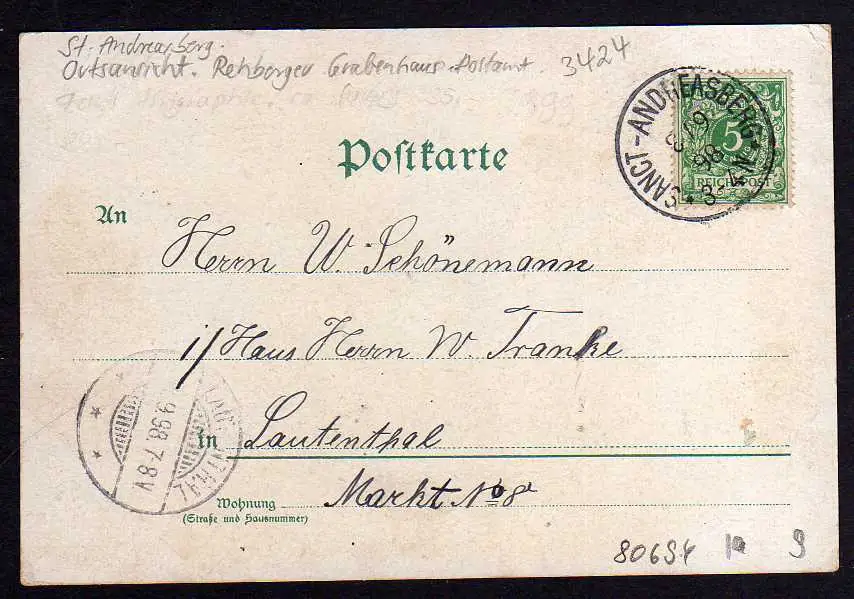 St. Andreasberg.
Ortsansicht. Rehberger Grabenhaus. Postamt.
3424
SANCT-ANDREASBERG
9
98
3-4N
5
REICHSPOST
Postkarte
An
Herrn W. Schönemann
i/ Haus Herrn W. Franke
in Lautenthal
LAUTENTHAL
9.98.7-8V
Wohnung
(Straße und Hausnummer)
Markt No 8
80654
10
9